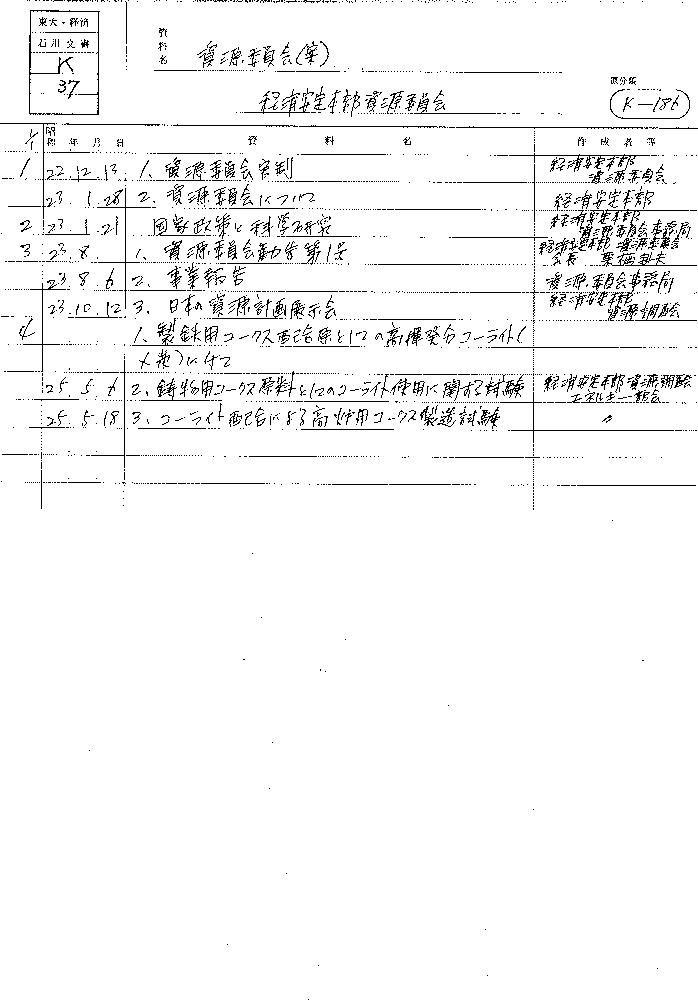 東大・経済
石川文書
K
37
資料名
資源委員会(案)
経済安定本部資源委員会
原分類
K-186
昭和 年 月 日 資料名 作成者等
1 22.12.13. 1. 資源委員会官制 経済安定本部 資源委員会
23.1.28 2. 資源委員会について 経済安定本部
2 23.1.21 国家政策と科学研究 経済安定本部 資源委員会事務局
3 23.8 1. 資源委員会勧告第1号 経済安定本部 資源委員会 会長 栗栖赳夫
23.8.6 2. 事業報告 資源委員会事務局
23.10.12 3. 日本の資源計画展示会 経済安定本部 資源調査会
4 1. 製鉄用コークス配合原としての高揮発分コーライト(
炭)に付て
25.5.6 2. 鋳物用コークス原料としてのコーライト使用に関する試験 経済安定本部資源調査会 エネルギー部会
25.5.18 3. コーライト配合による高炉用コークス製造試験 〃